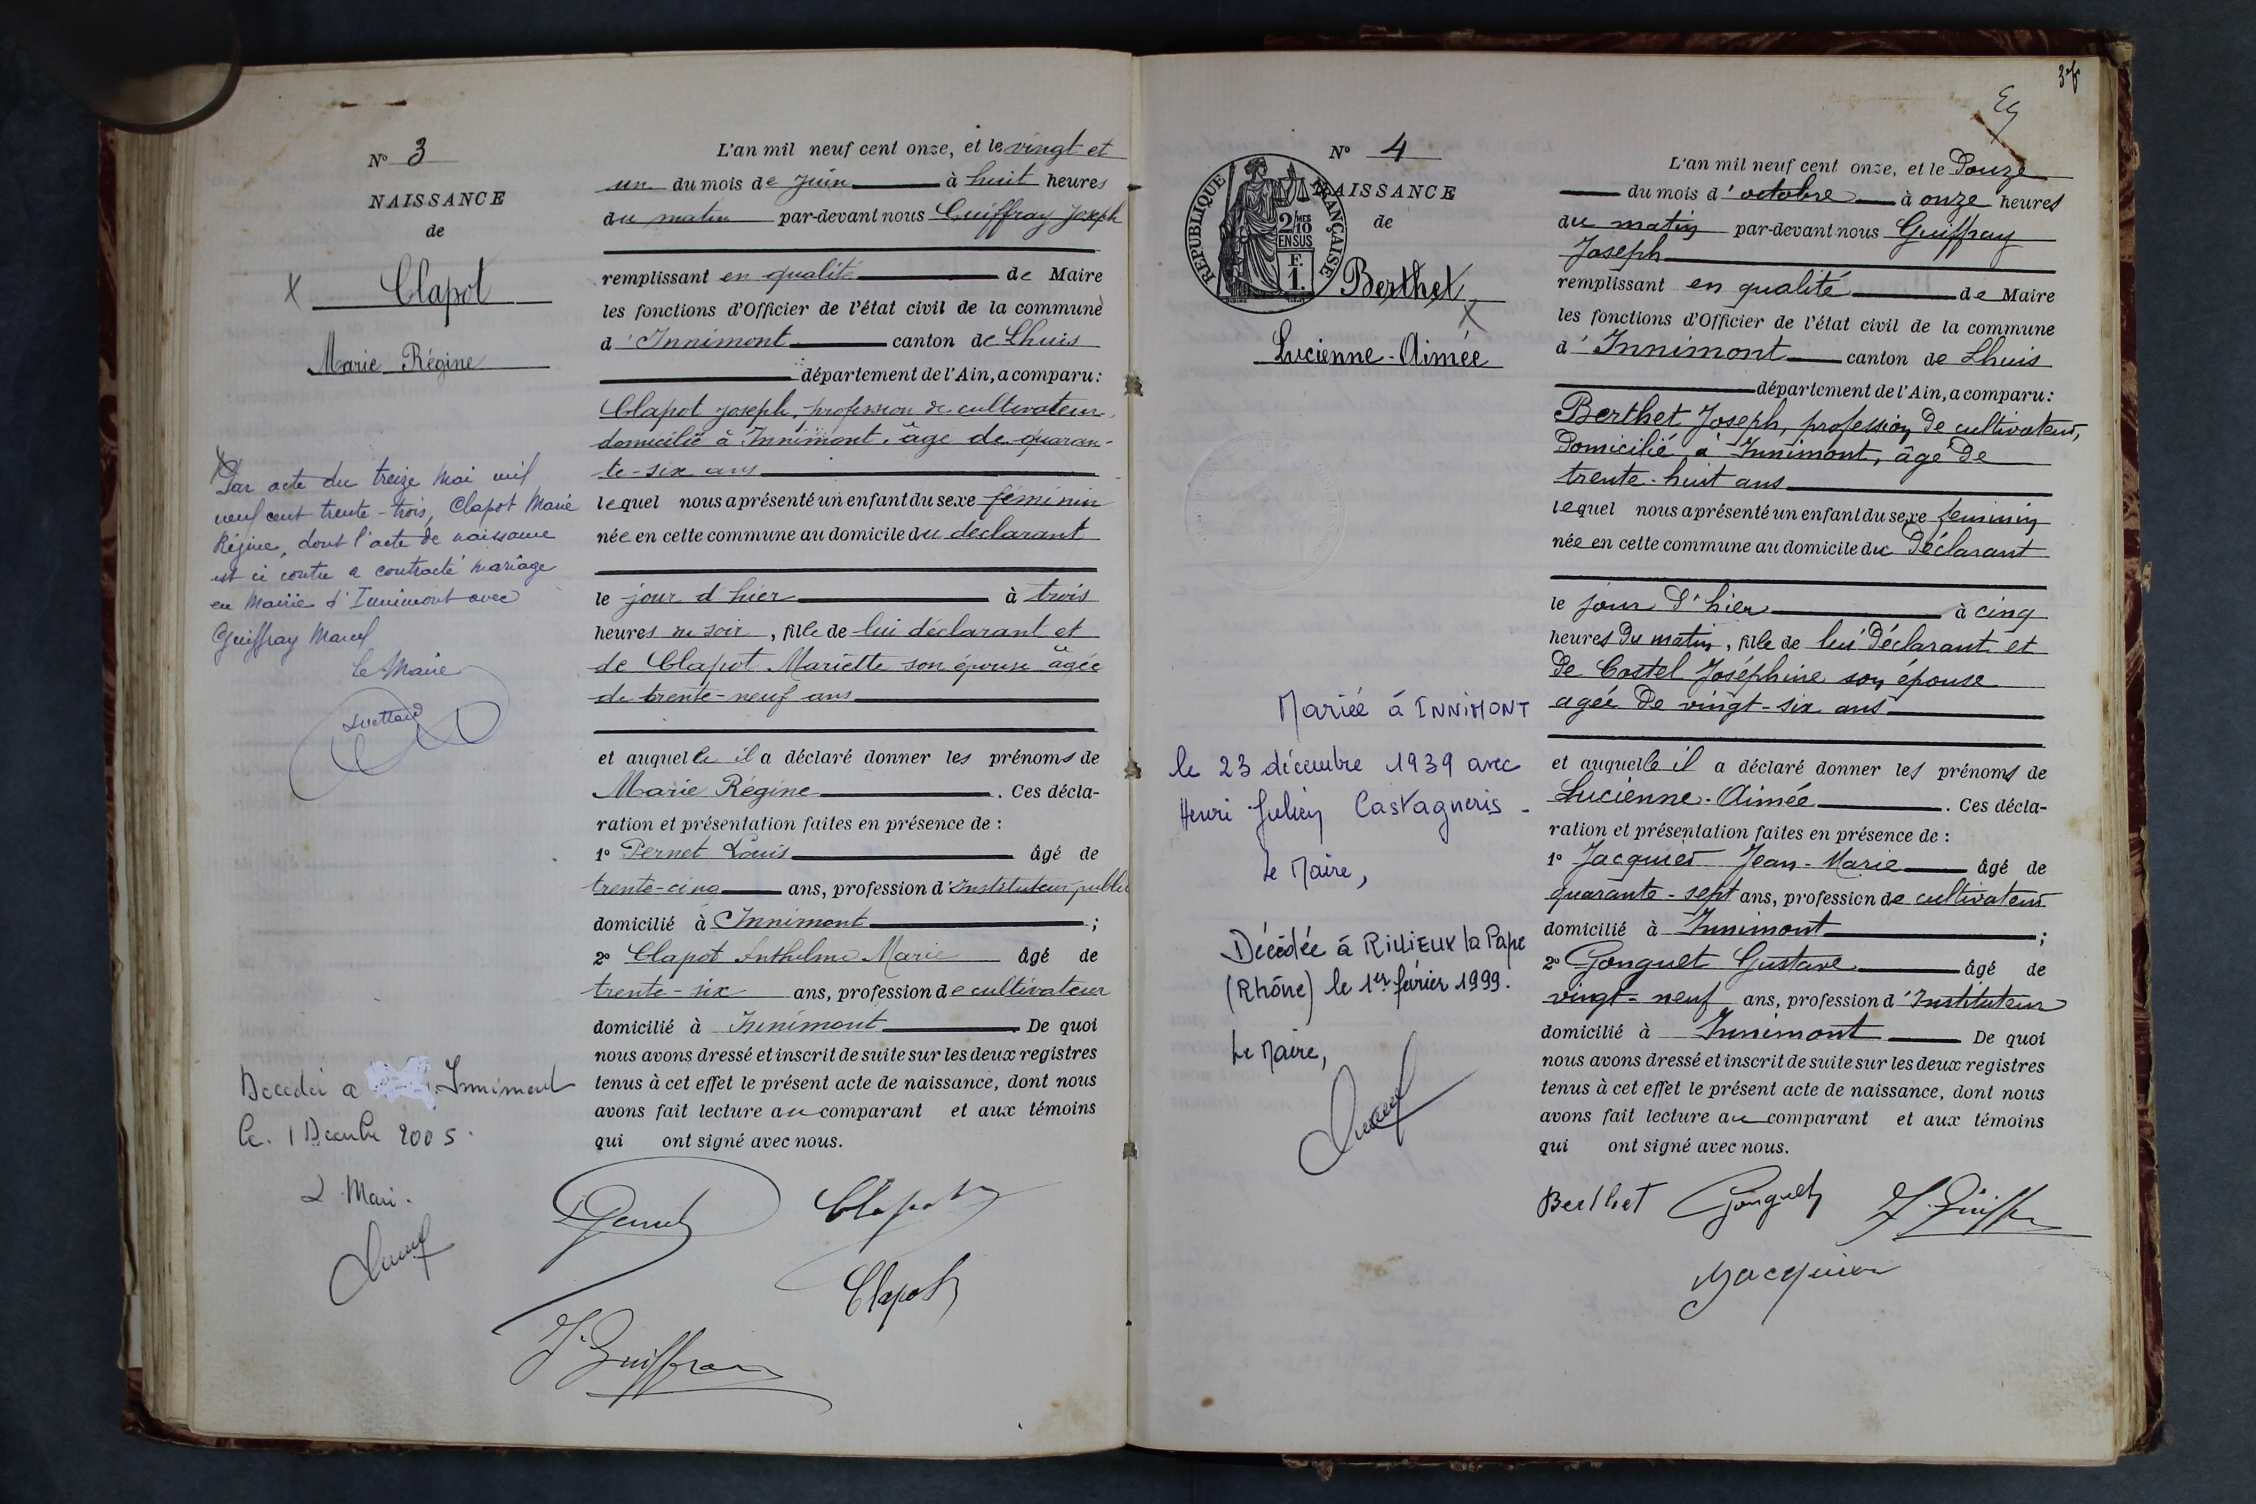 N° 3
NAISSANCE
de
Clapot
Marie Régine
Par acte du treize Mai mil
neuf cent trente-trois, Clapot Marie
Régine, dont l'acte de naissance
est ci contre a contracté mariage
en Mairie d'Innimont avec
Guiffray Marcel
le Maire
Décédée a Innimont
le 1 Decembre 2005.
L'an mil neuf cent onze, et le vingt et
un du mois de Juin à huit heures
du matin par-devant nous Guiffray Joseph
remplissant en qualité de Maire
les fonctions d'Officier de l'état civil de la commune
d'Innimont canton de Lhuis
département de l'Ain, a comparu :
Clapot Joseph, profession de cultivateur,
domicilié à Innimont, âgé de quaran-
te-six ans
lequel nous a présenté un enfant du sexe féminin
née en cette commune au domicile du déclarant
le jour d'hier à trois
heures du soir, fille de lui déclarant et
de Clapot Mariette son épouse âgée
de trente-neuf ans
et auquelle il a déclaré donner les prénoms de
Marie Régine. Ces décla-
ration et présentation faites en présence de :
1° Pernet Louis âgé de
trente-cinq ans, profession d'Instituteur public
domicilié à Innimont ;
2° Clapot Anthelme Marie âgé de
trente-six ans, profession de cultivateur
domicilié à Innimont De quoi
nous avons dressé et inscrit de suite sur les deux registres
tenus à cet effet le présent acte de naissance, dont nous
avons fait lecture au comparant et aux témoins
qui ont signé avec nous.
Clapot
Clapot
J. Guiffray
N° 4
NAISSANCE
de
RÉPUBLIQUE FRANÇAISE
2/10 EN SUS
F. 1.
Berthet
Lucienne-Aimée
Mariée à INNIMONT
le 23 décembre 1939 avec
Henri Julien Castagneris -
Le Maire,
Décédée à RILLIEUX la Pape
(Rhône) le 1er février 1999.
Le Maire,
L'an mil neuf cent onze, et le Douze
du mois d'octobre à onze heures
du matin par-devant nous Guiffray
Joseph
remplissant en qualité de Maire
les fonctions d'Officier de l'état civil de la commune
d'Innimont canton de Lhuis
département de l'Ain, a comparu :
Berthet Joseph, profession de cultivateur,
Domicilié à Innimont, âgé de
trente-huit ans
lequel nous a présenté un enfant du sexe feminin
née en cette commune au domicile du Déclarant
le jour d'hier à cinq
heures du matin, fille de lui Déclarant et
de Costel Joséphine son épouse
agée de vingt-six ans
et auquelle il a déclaré donner les prénoms de
Lucienne-Aimée. Ces décla-
ration et présentation faites en présence de :
1° Jacquier Jean-Marie âgé de
quarante-sept ans, profession de cultivateur
domicilié à Innimont ;
2° Gonguet Gustave âgé de
vingt-neuf ans, profession d'Instituteur
domicilié à Innimont De quoi
nous avons dressé et inscrit de suite sur les deux registres
tenus à cet effet le présent acte de naissance, dont nous
avons fait lecture au comparant et aux témoins
qui ont signé avec nous.
Berthet Gonguet
Jacquier